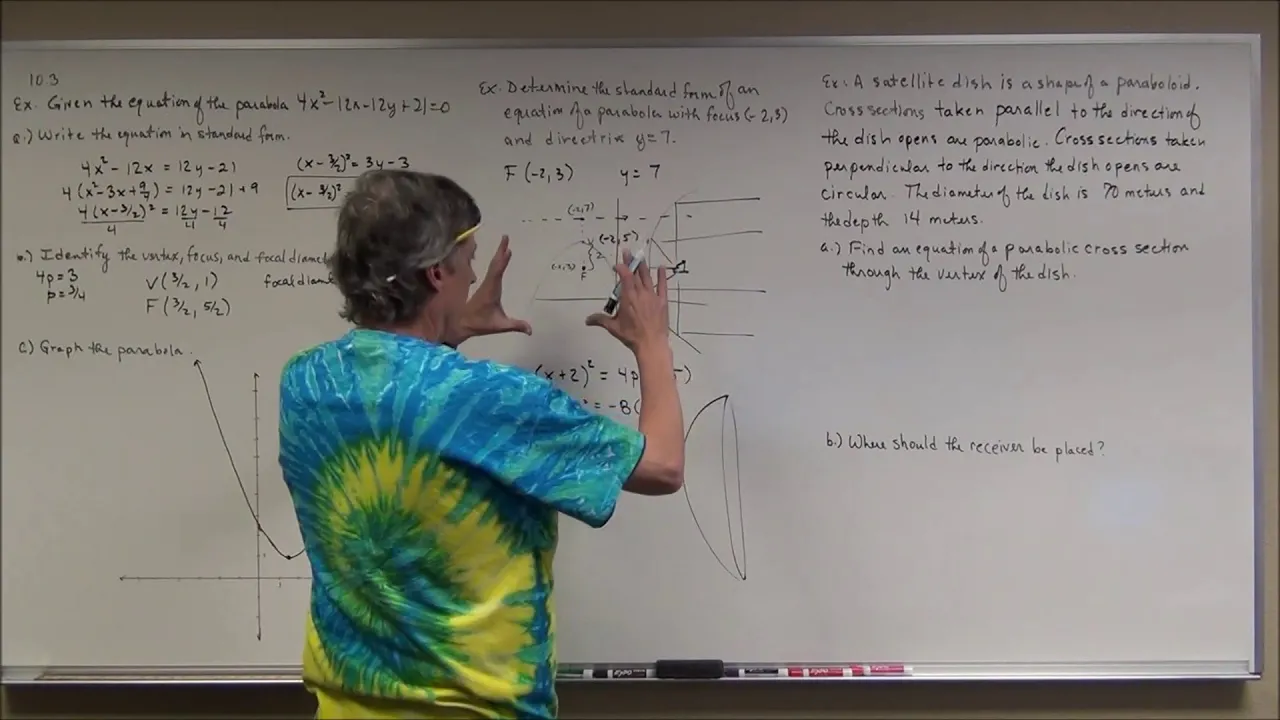 10.3
Ex. Given the equation of the parabola 4x²-12x-12y+21=0
a.) Write the equation in standard form.
4x²-12x = 12y-21
4(x²-3x+9/4) = 12y-21+9
4(x-3/2)²/4 = 12y/4-12/4
(x-3/2)² = 3y-3
(x-3/2)²
b.) Identify the vertex, focus, and focal
4p=3
p=3/4
V(3/2, 1)
F(3/2, 5/2)
focal
c.) Graph the parabola.
Ex. Determine the standard form of an
equation of a parabola with focus (-2,3)
and directrix y=7.
F(-2,3) y=7
(-2,7)
(-2,5)
V
2
(-2,3)
F
(x+2)² = 4p
= -8(
Ex. A satellite dish is a shape of a paraboloid.
Cross sections taken parallel to the direction of
the dish opens are parabolic. Cross sections taken
perpendicular to the direction the dish opens are
circular. The diameter of the dish is 70 meters and
the depth 14 meters.
a.) Find an equation of a parabolic cross section
through the vertex of the dish.
b.) Where should the receiver be placed?